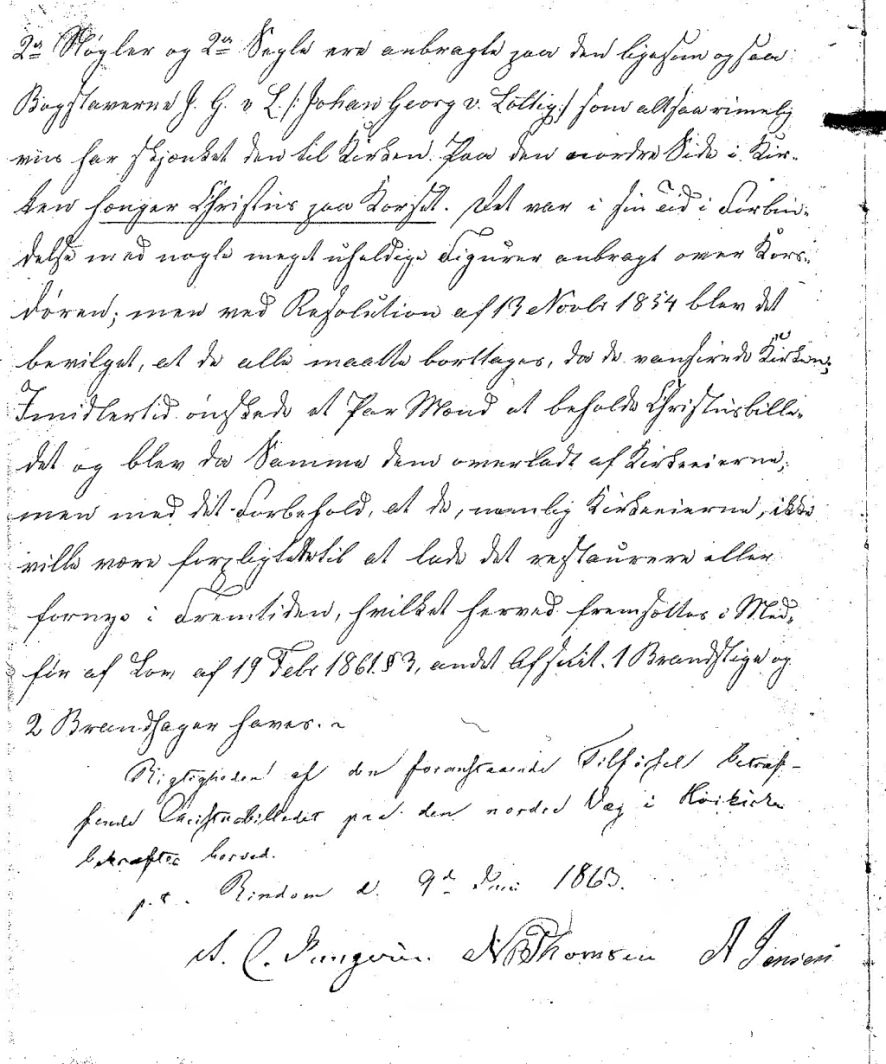 2de Nøgler og 2de Segle ere anbragte paa den ligesom ogsaa
Bogstaverne J. G. v L. /: Johan Georg v. Lottig:/ som altsaa rimelig
viis har skjænket den til Kirken. Paa den nordre Side i Kir-
ken hænger Christus paa Korset. Det var i sin Tid i Forbin-
delse med nogle meget uheldige Figurer anbragt over Kors-
døren; men ved Resolution af 13 Novbr 1854 blev det
bevilget, at de alle maatte borttages, da de vansirede Kirken;
Imidlertid ønskede et Par Mænd at beholde Christusbille-
det og blev da Samme dem overladt af Kirkeeierne;
men med det Forbehold, at de, nemlig Kirkeeierne, ikke
ville være forpligtette til at lade det restaurere eller
fornye i Fremtiden, hvilket herved fremsættes i Med-
før af Lov af 19 Febr 1861 § 3, andet Afsnit. 1 Brandstige og
2 Brandhager haves. ~
Rigtigheden af den foranstaaende Tilførsel betræf-
fende Christusbilledet paa den nordre Væg i Kirken
bekræftes herved.
p. t. Rindom d. 9de Juni 1863.
A. C. N B Thomsen A Jensen